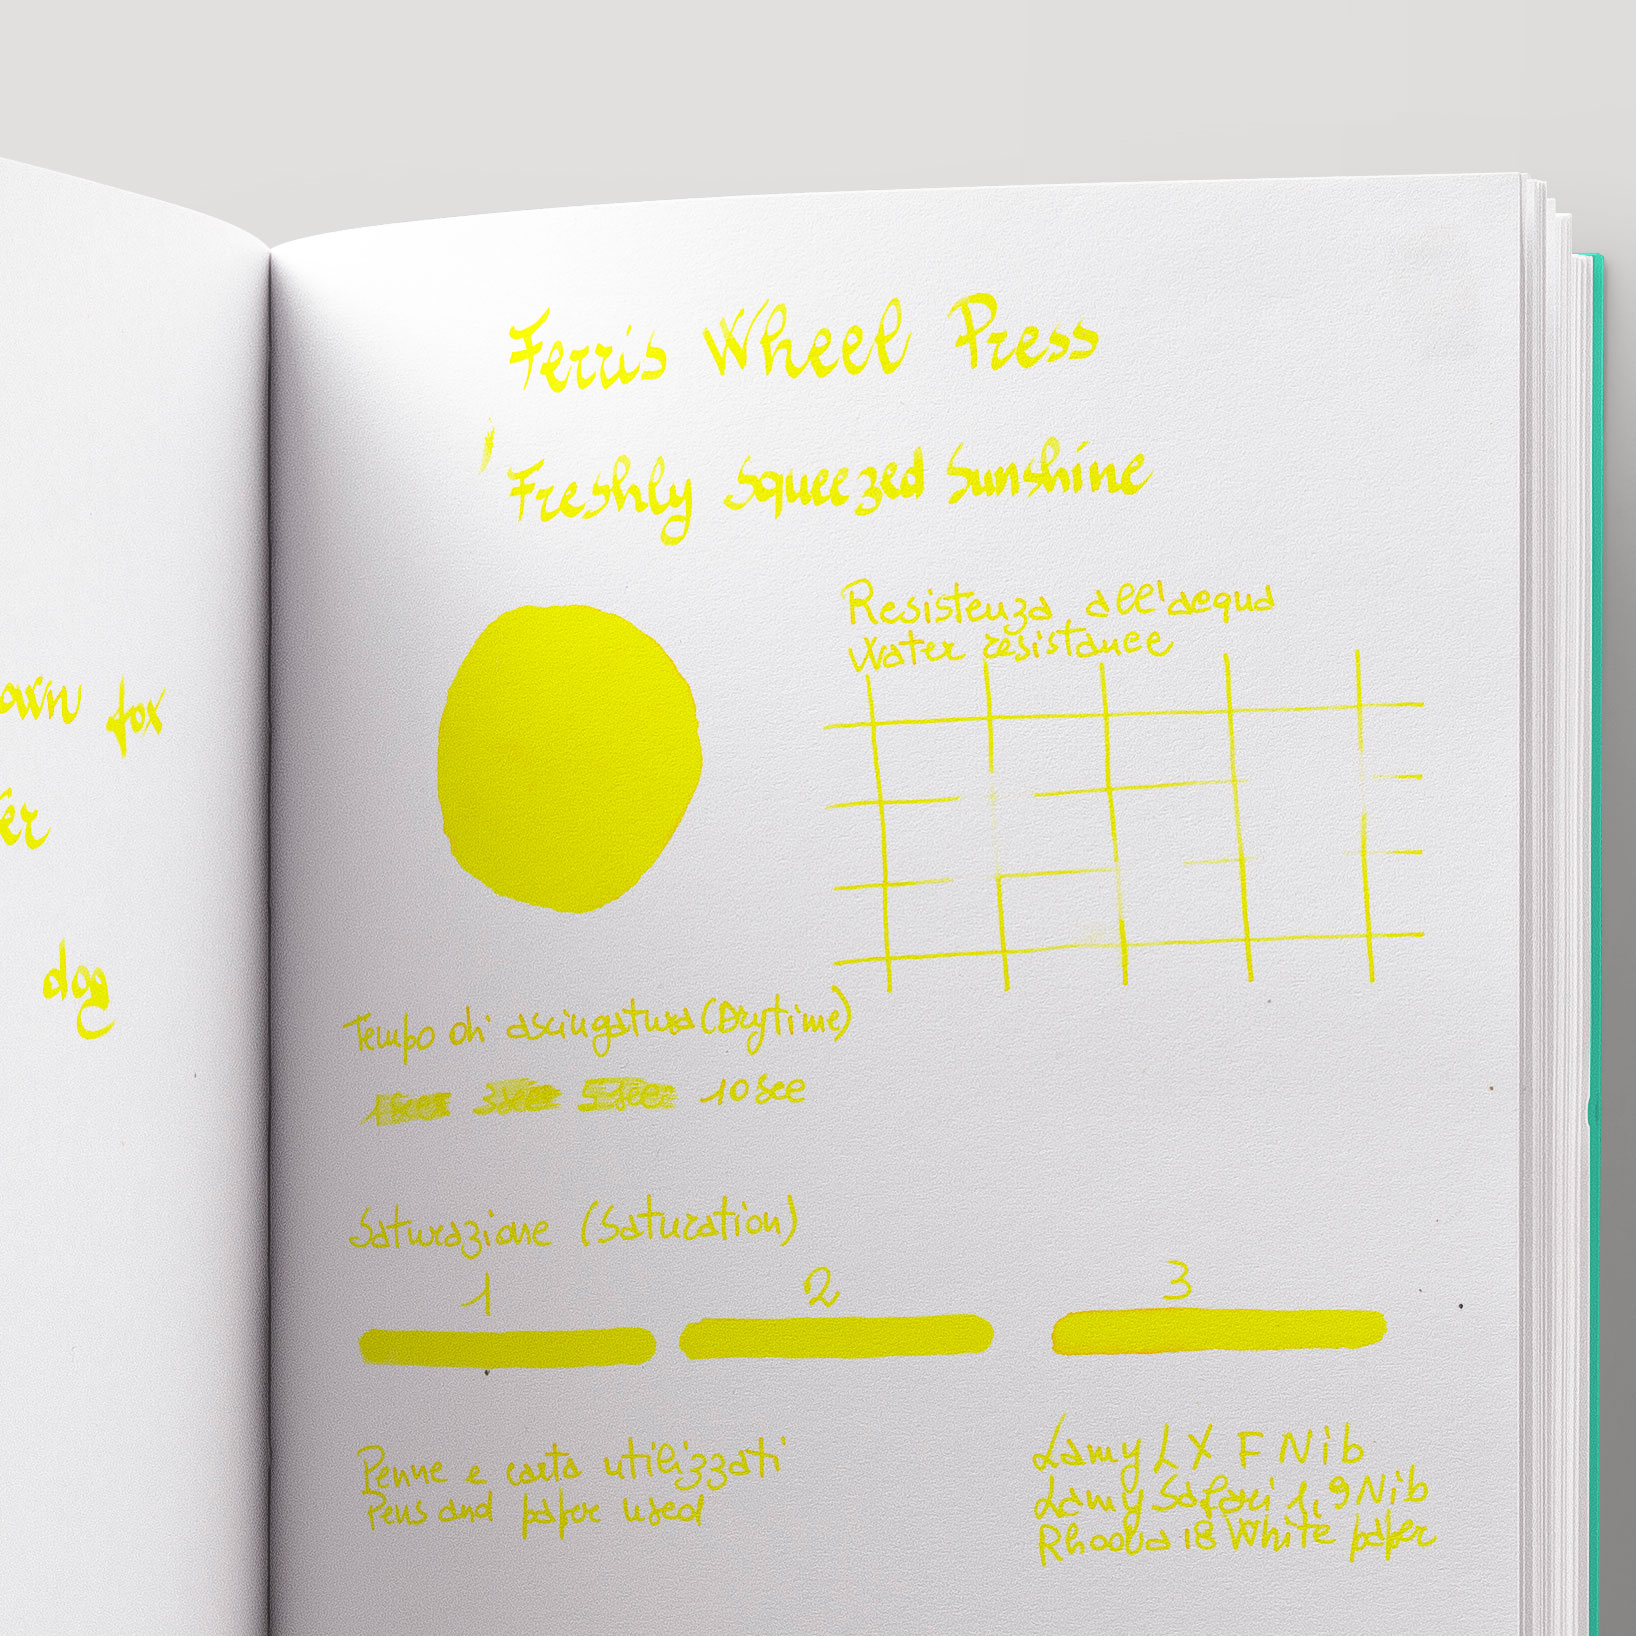 own fox
er
dog
Ferris Wheel Press
Freshly Squeezed Sunshine
Resistenza all'acqua
Water resistance
Tempo di asciugatura (Drytime)
1sec 3sec 5sec 10sec
Saturazione (Saturation)
1 2 3
Penne e carta utilizzati
Pens and paper used
Lamy LX F Nib
Lamy Safari 1,9 Nib
Rhodia 18 White paper